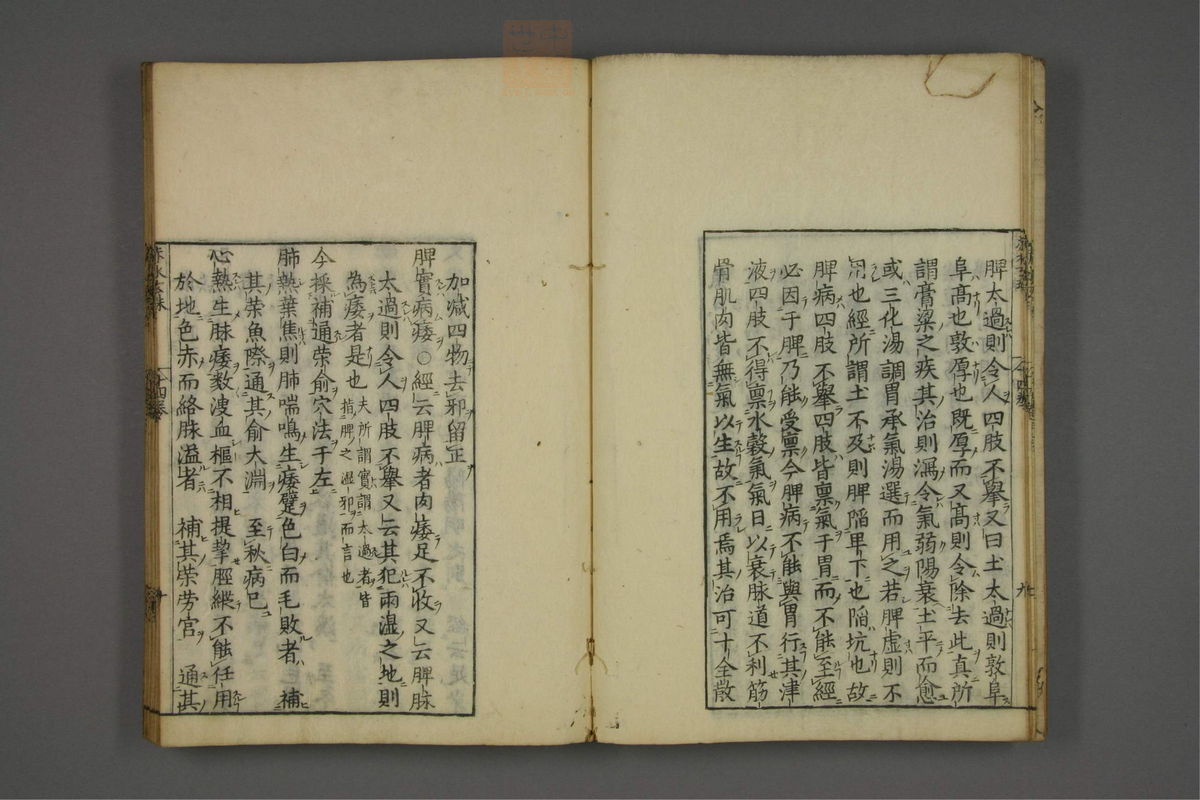 脾太過則令人四肢不舉又曰土太過則敦阜
阜高也敦厚也既厚而又高則令除去此真所
謂膏粱之疾其治則瀉令氣弱陽衰土平而愈
或三化湯調胃承氣湯選而用之若脾虛則不
用也經所謂土不及則脾陷卑下也陷坑也故
脾病四肢不舉四肢皆稟氣于胃而不能至經
必因于脾乃能受稟今脾病不能與胃行其津
液四肢不得稟水穀氣氣日以衰脉道不利筋
骨肌肉皆無氣以生故不用焉其治可十全散
加减四物去邪留正
脾實病痿○經云脾病者肉痿足不收又云脾脉
太過則令人四肢不舉又云其犯雨濕之地則
為痿者是也夫所謂實謂太過者皆
指脾之濕邪而言也
今採補通榮俞穴法于左
肺熱葉焦則肺喘鳴生痿躄色白而毛敗者 補
其榮魚際通其俞大淵 至秋病已
心熱生脉痿數溲血樞不相提挈脛縱不能任用
於地色赤而絡脉溢者 補其榮勞宮 通其